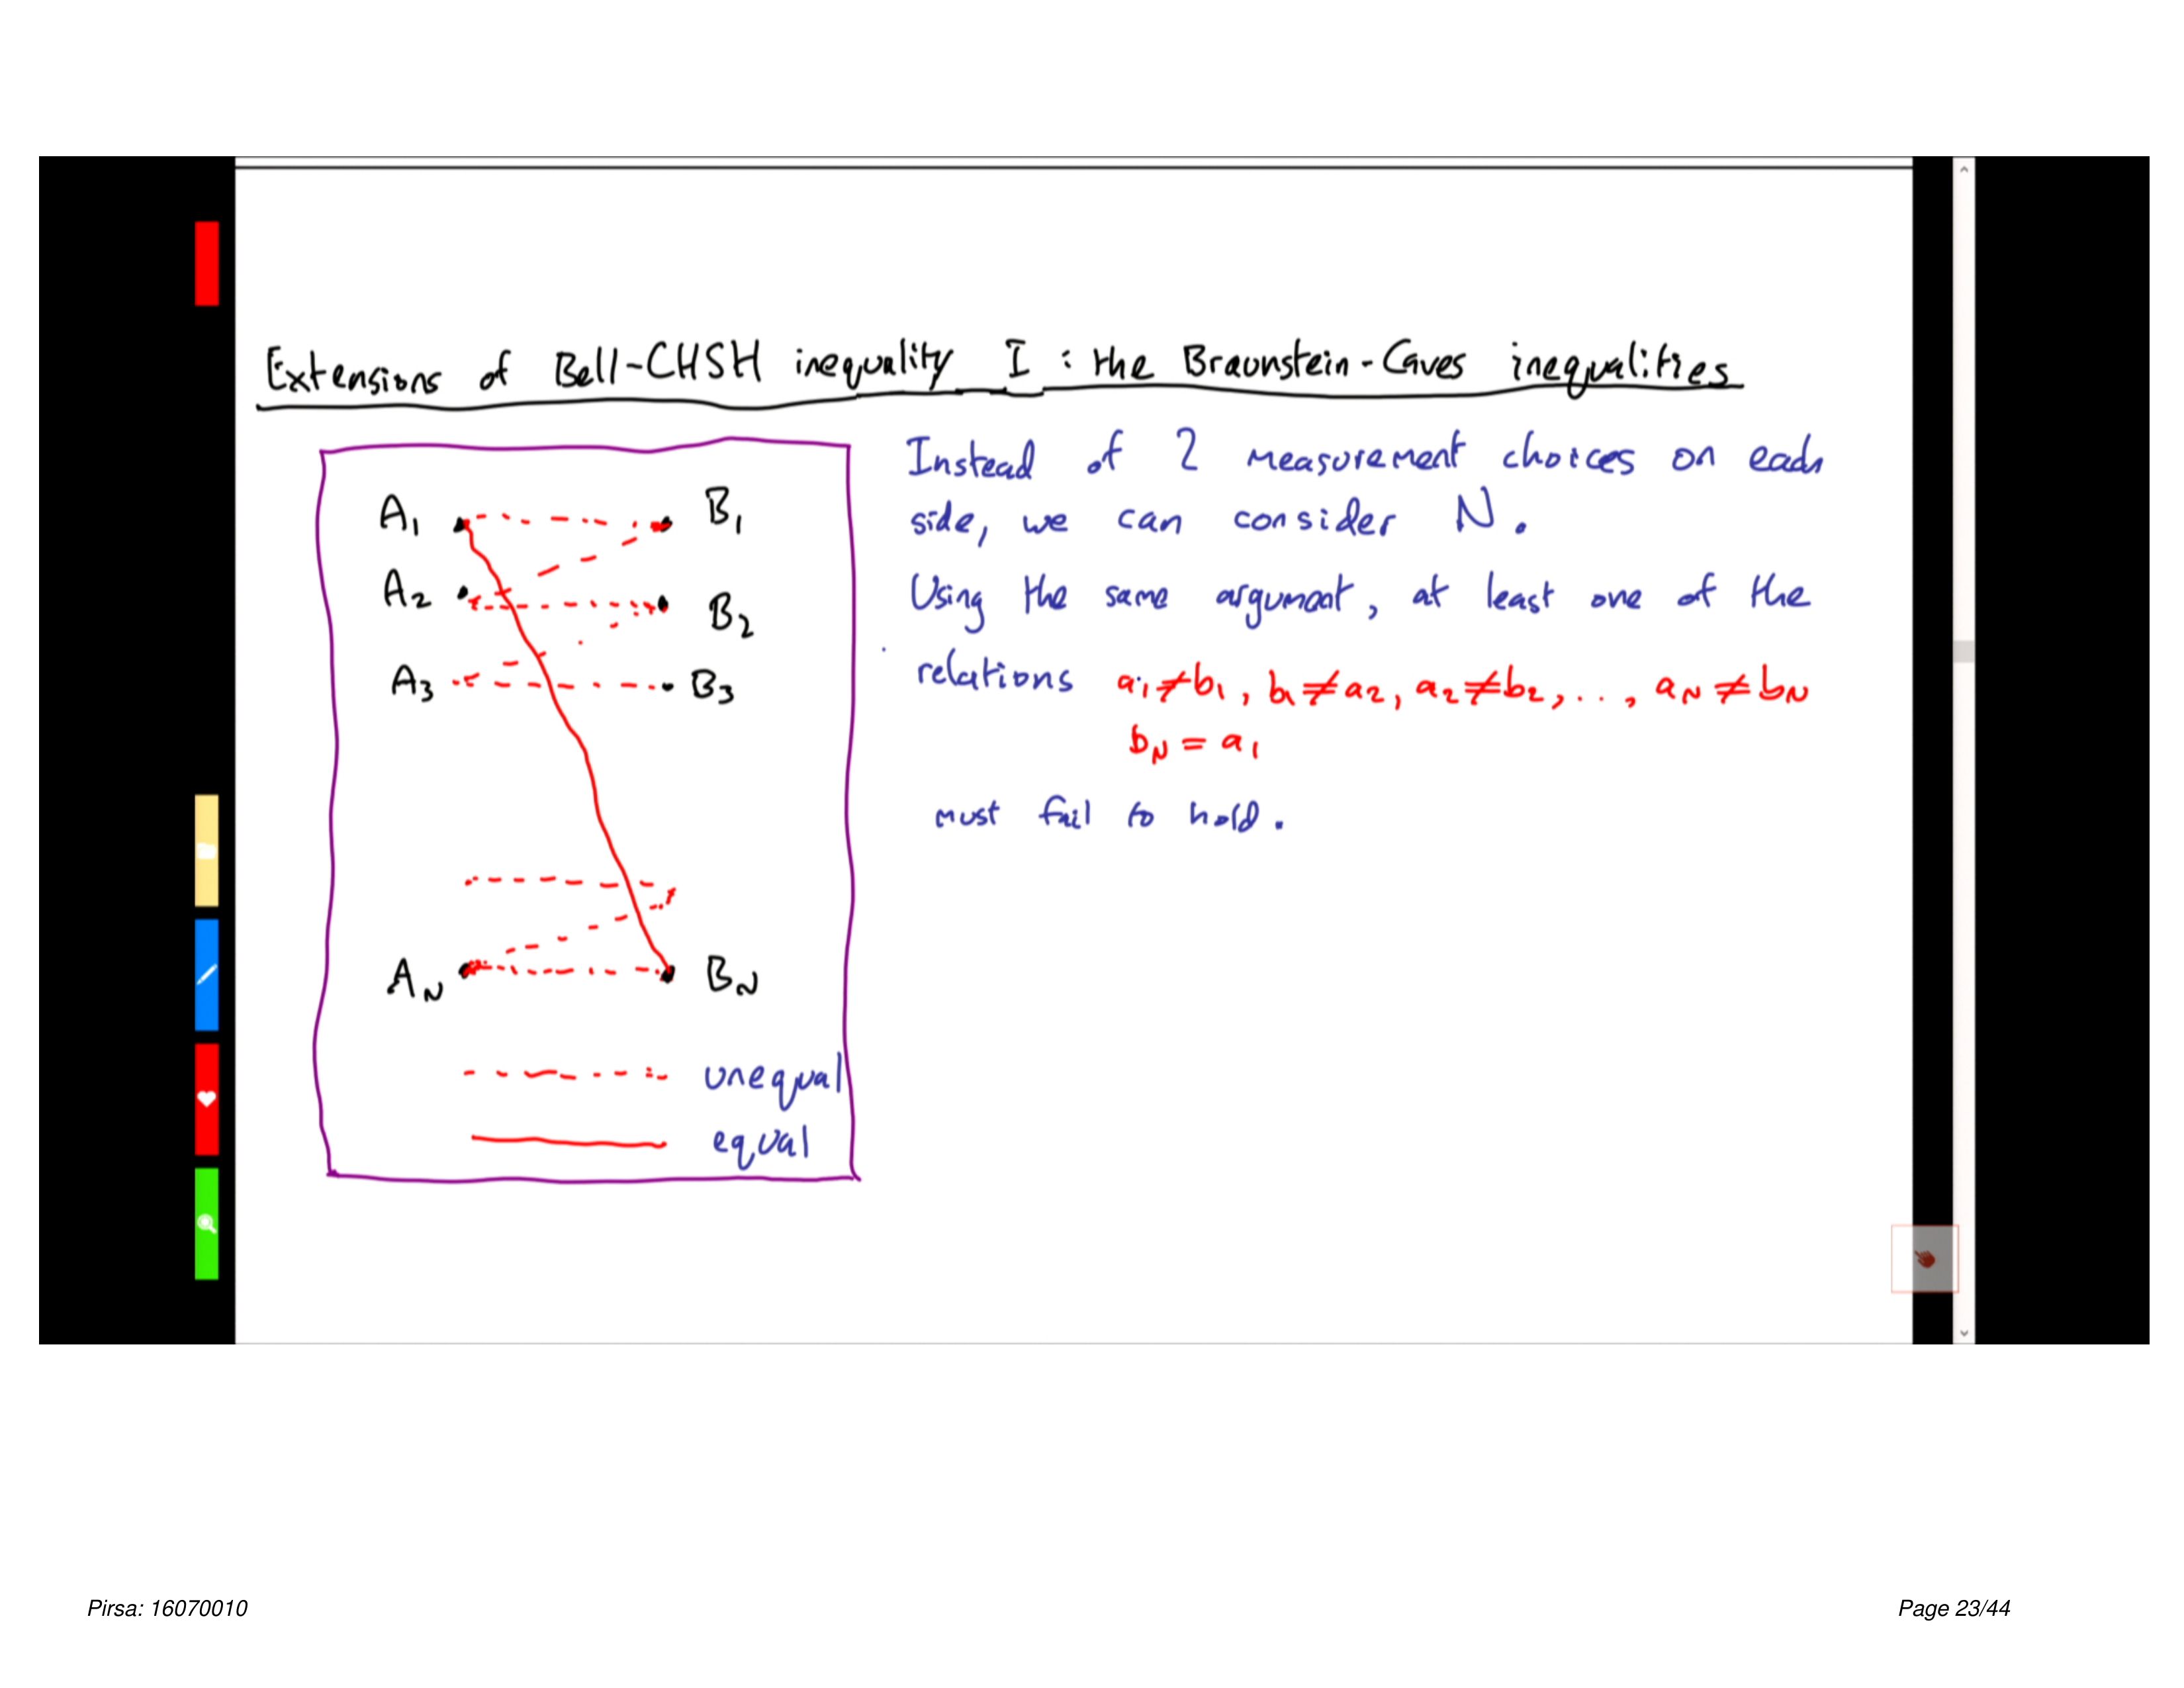 Extensions of Bell-CHSH inequality I : the Braunstein-Caves inequalities
A₁ B₁
A₂ B₂
A₃ B₃
A_N B_N
unequal
equal
Instead of 2 measurement choices on each
side, we can consider N.
Using the same argument, at least one of the
relations a₁≠b₁, b₁≠a₂, a₂≠b₂, ..., a_N≠b_N
b_N = a₁
must fail to hold.
Pirsa: 16070010
Page 23/44